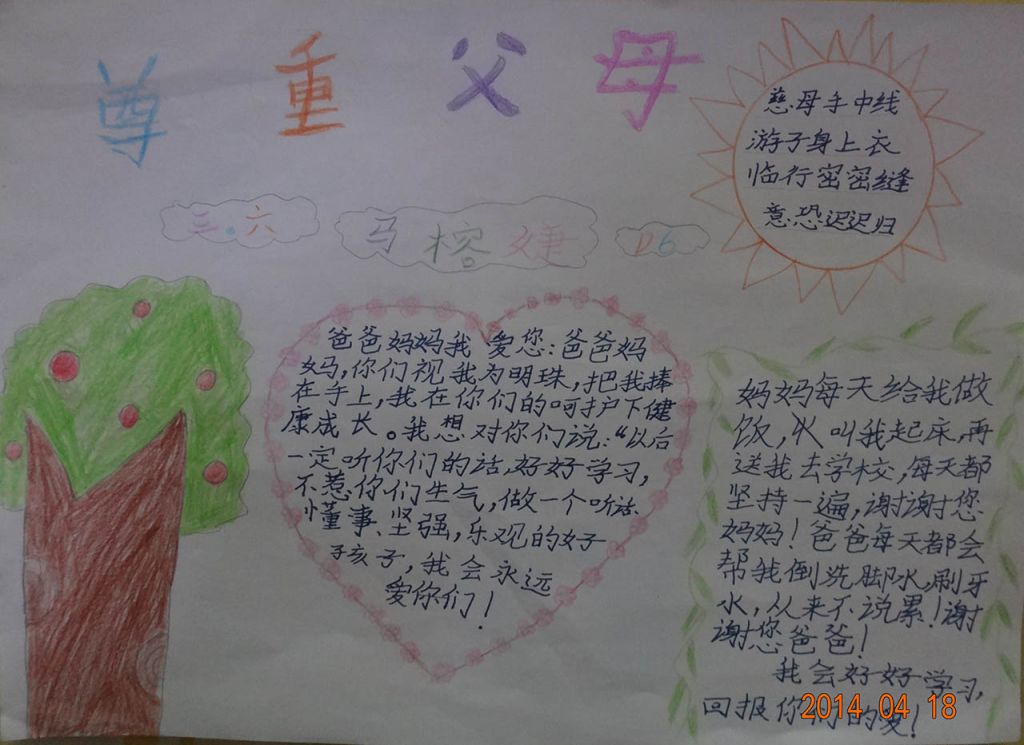 尊重父母
慈母手中线
游子身上衣
临行密密缝
意恐迟迟归
三.六 马榕婕 06
爸爸妈妈我爱您:爸爸妈
妈,你们视我为明珠,把我捧
在手上,我在你们的呵护下健
康成长。我想对你们说:“以后
一定听你们的话,好好学习,
不惹你们生气,做一个听话
懂事、坚强,乐观的好
孩子,我会永远
爱你们!
妈妈每天给我做
饭,叫我起床,再
送我去学校,每天都
坚持一遍,谢谢您
妈妈!爸爸每天都会
帮我倒洗脚水,刷牙
水,从来不说累!谢
谢您爸爸!
我会好好学习,
回报你们的爱!
2014 04 18